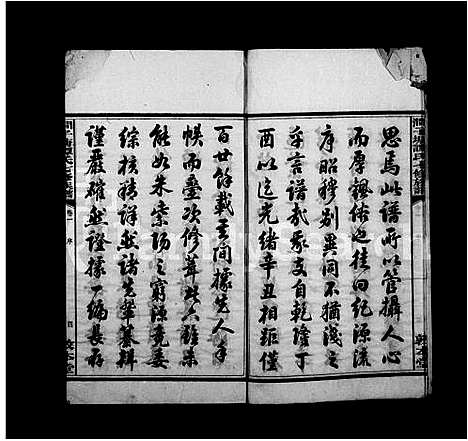 思焉此譜所以管攝人心
而厚風俗也往自紀源流
序昭穆別異同不猶淺之
乎言譜哉我支自乾隆丁
酉以迄光緒辛丑相距僅
百世餘載其間據先人手
帙而疊次修葺此六雖未
能如朱紫陽之窮源竟委
綜核精詳然諸先輩纂輯
謹嚴確然證據一編長存
卷一
序
敦本堂
FamilySearch